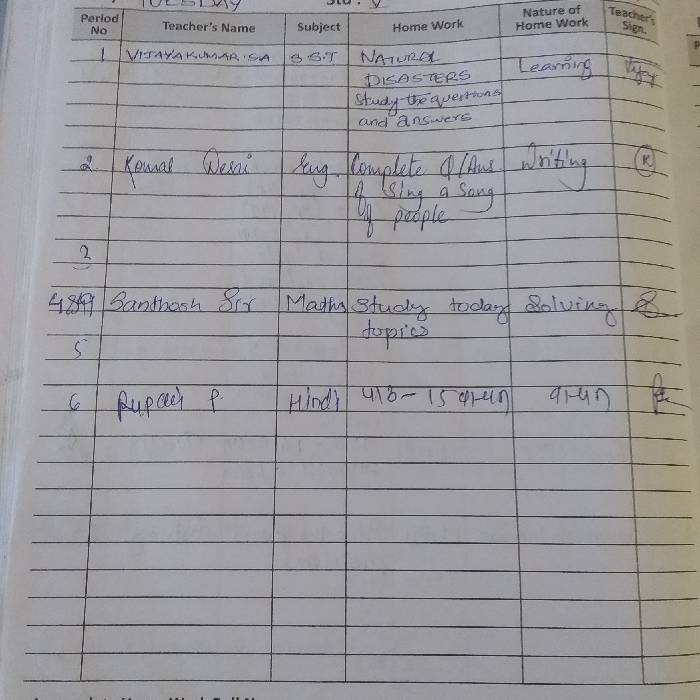 TUESDAY Std : V
Period No Teacher's Name Subject Home Work Nature of Home Work Teacher's Sign.
1 VIJAYAKUMAR.SA S.S.T NATURAL Learning
DISASTERS
Study the questions
and answers
2. Komal Desai Eng. Complete Q/Ans Writing K
of Sing a Song
of people
2
Santhosh Sir Maths Study today Solving
topics
5
6 Rupali P. Hindi पाठ - 15 वाचन वाचन